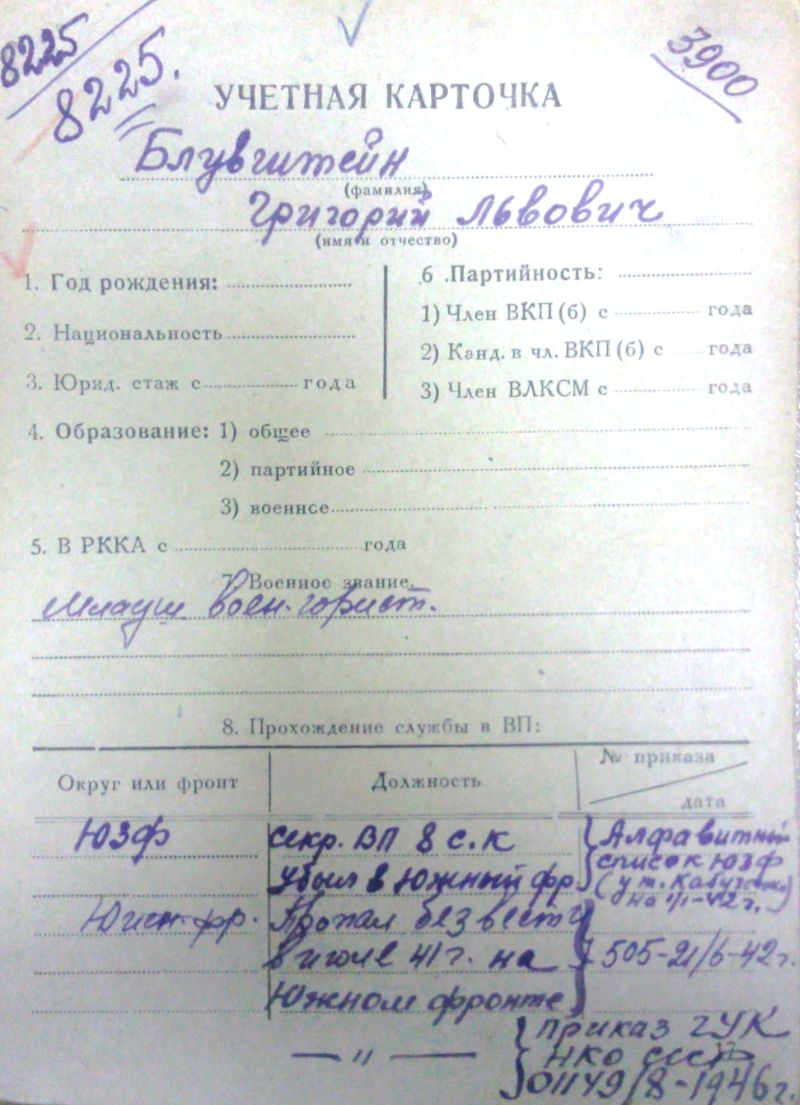 8225
8225.
3900
УЧЕТНАЯ КАРТОЧКА
Блувштейн
(фамилия)
Григорий Львович
(имя и отчество)
1. Год рождения:
6. Партийность:
1) Член ВКП(б) с года
2. Национальность
2) Канд. в чл. ВКП(б) с года
3. Юрид. стаж с года
3) Член ВЛКСМ с года
4. Образование: 1) общее
2) партийное
3) военнсе
5. В РККА с года
7. Военное звание.
Младш воен-юрист.
8. Прохождение службы в ВП:
Округ или фронт
Должность
№ приказа
дата
ЮЗФ
секр. ВП 8 с.к
Алфавитный
список ЮЗФ
убыл в Южный фр.
на 1/1-42 г.)
Южн фр.
Пропал без вести
в июле 41 г. на
505-21/6-42 г.
Южном фронте
— " —
приказ ГУК
НКО СССР
01149/8-1946 г.